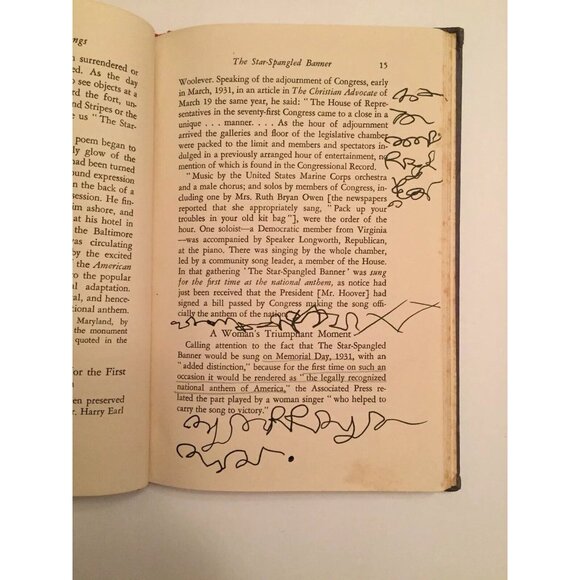 ngs
n surrendered or
ed. As the day
o see objects at a
rd the fort, un-
Stripes or the
us "The Star-
poem began to
ly glow of the
had been turned
ound expression
n the back of a
session. He fin-
im ashore, and
at his hotel in
the Baltimore
was circulating
by the excited
the American
to the popular
al adaptation.
d, and hence-
tional anthem.
Maryland, by
the monument
quoted in the
for the First
n
een preserved
r. Harry Earl
The Star-Spangled Banner 15
Woolever. Speaking of the adjournment of Congress, early
in March, 1931, in an article in The Christian Advocate of
March 19 the same year, he said: "The House of Repre-
sentatives in the seventy-first Congress came to a close in a
unique . . . manner. . . . As the hour of adjournment
arrived the galleries and floor of the legislative chamber
were packed to the limit and members and spectators in-
dulged in a previously arranged hour of entertainment, no
mention of which is found in the Congressional Record.
"Music by the United States Marine Corps orchestra
and a male chorus; and solos by members of Congress, in-
cluding one by Mrs. Ruth Bryan Owen [the newspapers
reported that she appropriately sang, "Pack up your
troubles in your old kit bag"], were the order of the
hour. One soloist—a Democratic member from Virginia
—was accompanied by Speaker Longworth, Republican,
at the piano. There was singing by the whole chamber,
led by a community song leader, a member of the House.
In that gathering 'The Star-Spangled Banner' was sung
for the first time as the national anthem, as notice had
just been received that the President [Mr. Hoover] had
signed a bill passed by Congress making the song offi-
cially the anthem of the nation.
A Woman's Triumphant Moment
Calling attention to the fact that The Star-Spangled
Banner would be sung on Memorial Day, 1931, with an
"added distinction," because for the first time on such an
occasion it would be rendered as "the legally recognized
national anthem of America," the Associated Press re-
lated the part played by a woman singer "who helped to
carry the song to victory."